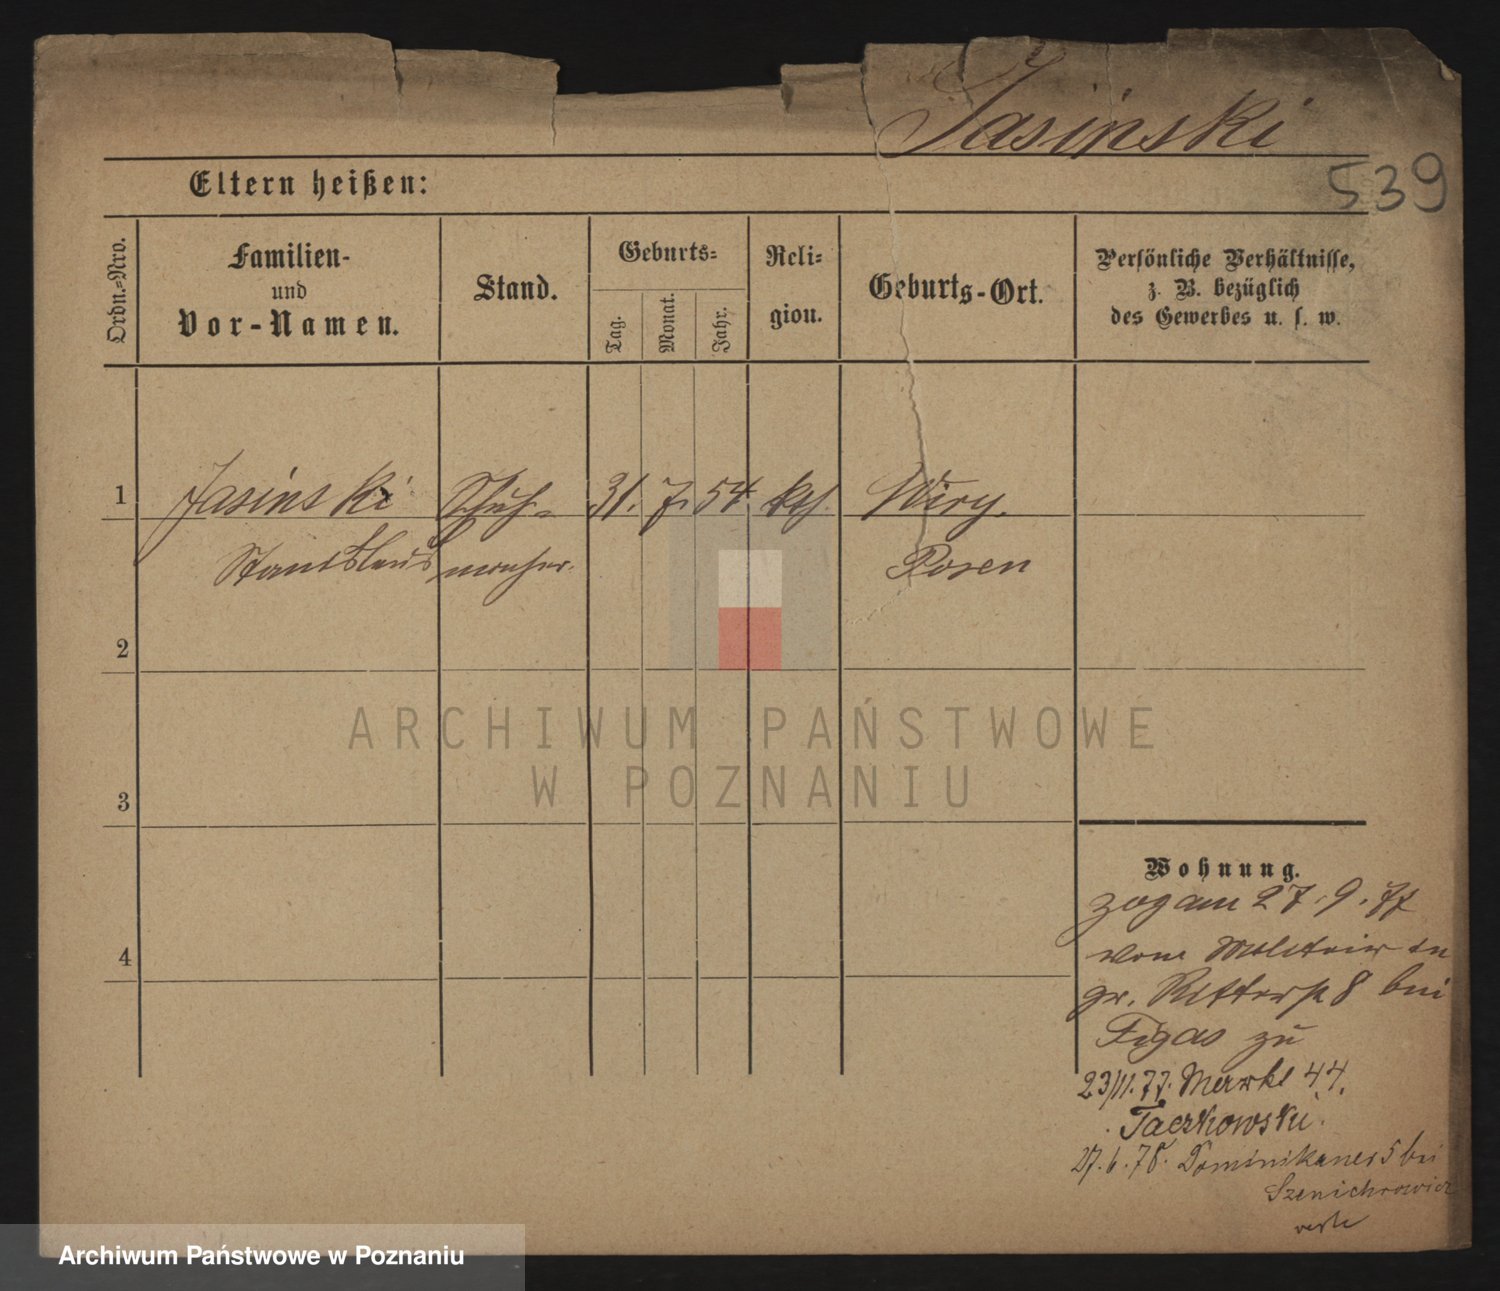 Jasinski
539
Eltern heißen:
Ordn.=Nro.
Familien-
und
Vor-Namen.
Stand.
Geburts=
Tag.
Monat.
Jahr.
Reli=
gion.
Geburts-Ort.
Persönliche Verhältnisse,
z. B. bezüglich
des Gewerbes u. s. w.
1 Jasinski Schuh- 31. 7. 54. kth. Wiry.
Stanislaus macher. Posen
2
3
4
ARCHIWUM PAŃSTWOWE
W POZNANIU
Wohnung.
zog am 27.9.77
vom Militair in
gr. Ritterst 8 bei
Figas zu
23/11.77. Markt 44.
Taczkowski.
27.6.78. Dominikaner 5 bei
Archiwum Państwowe w Poznaniu